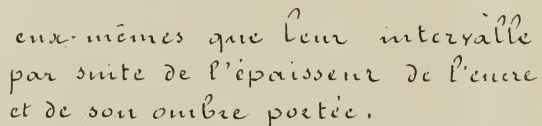 eux-mêmes que leur intervalle
par suite de l'épaisseur de l'encre
et de son ombre portée.